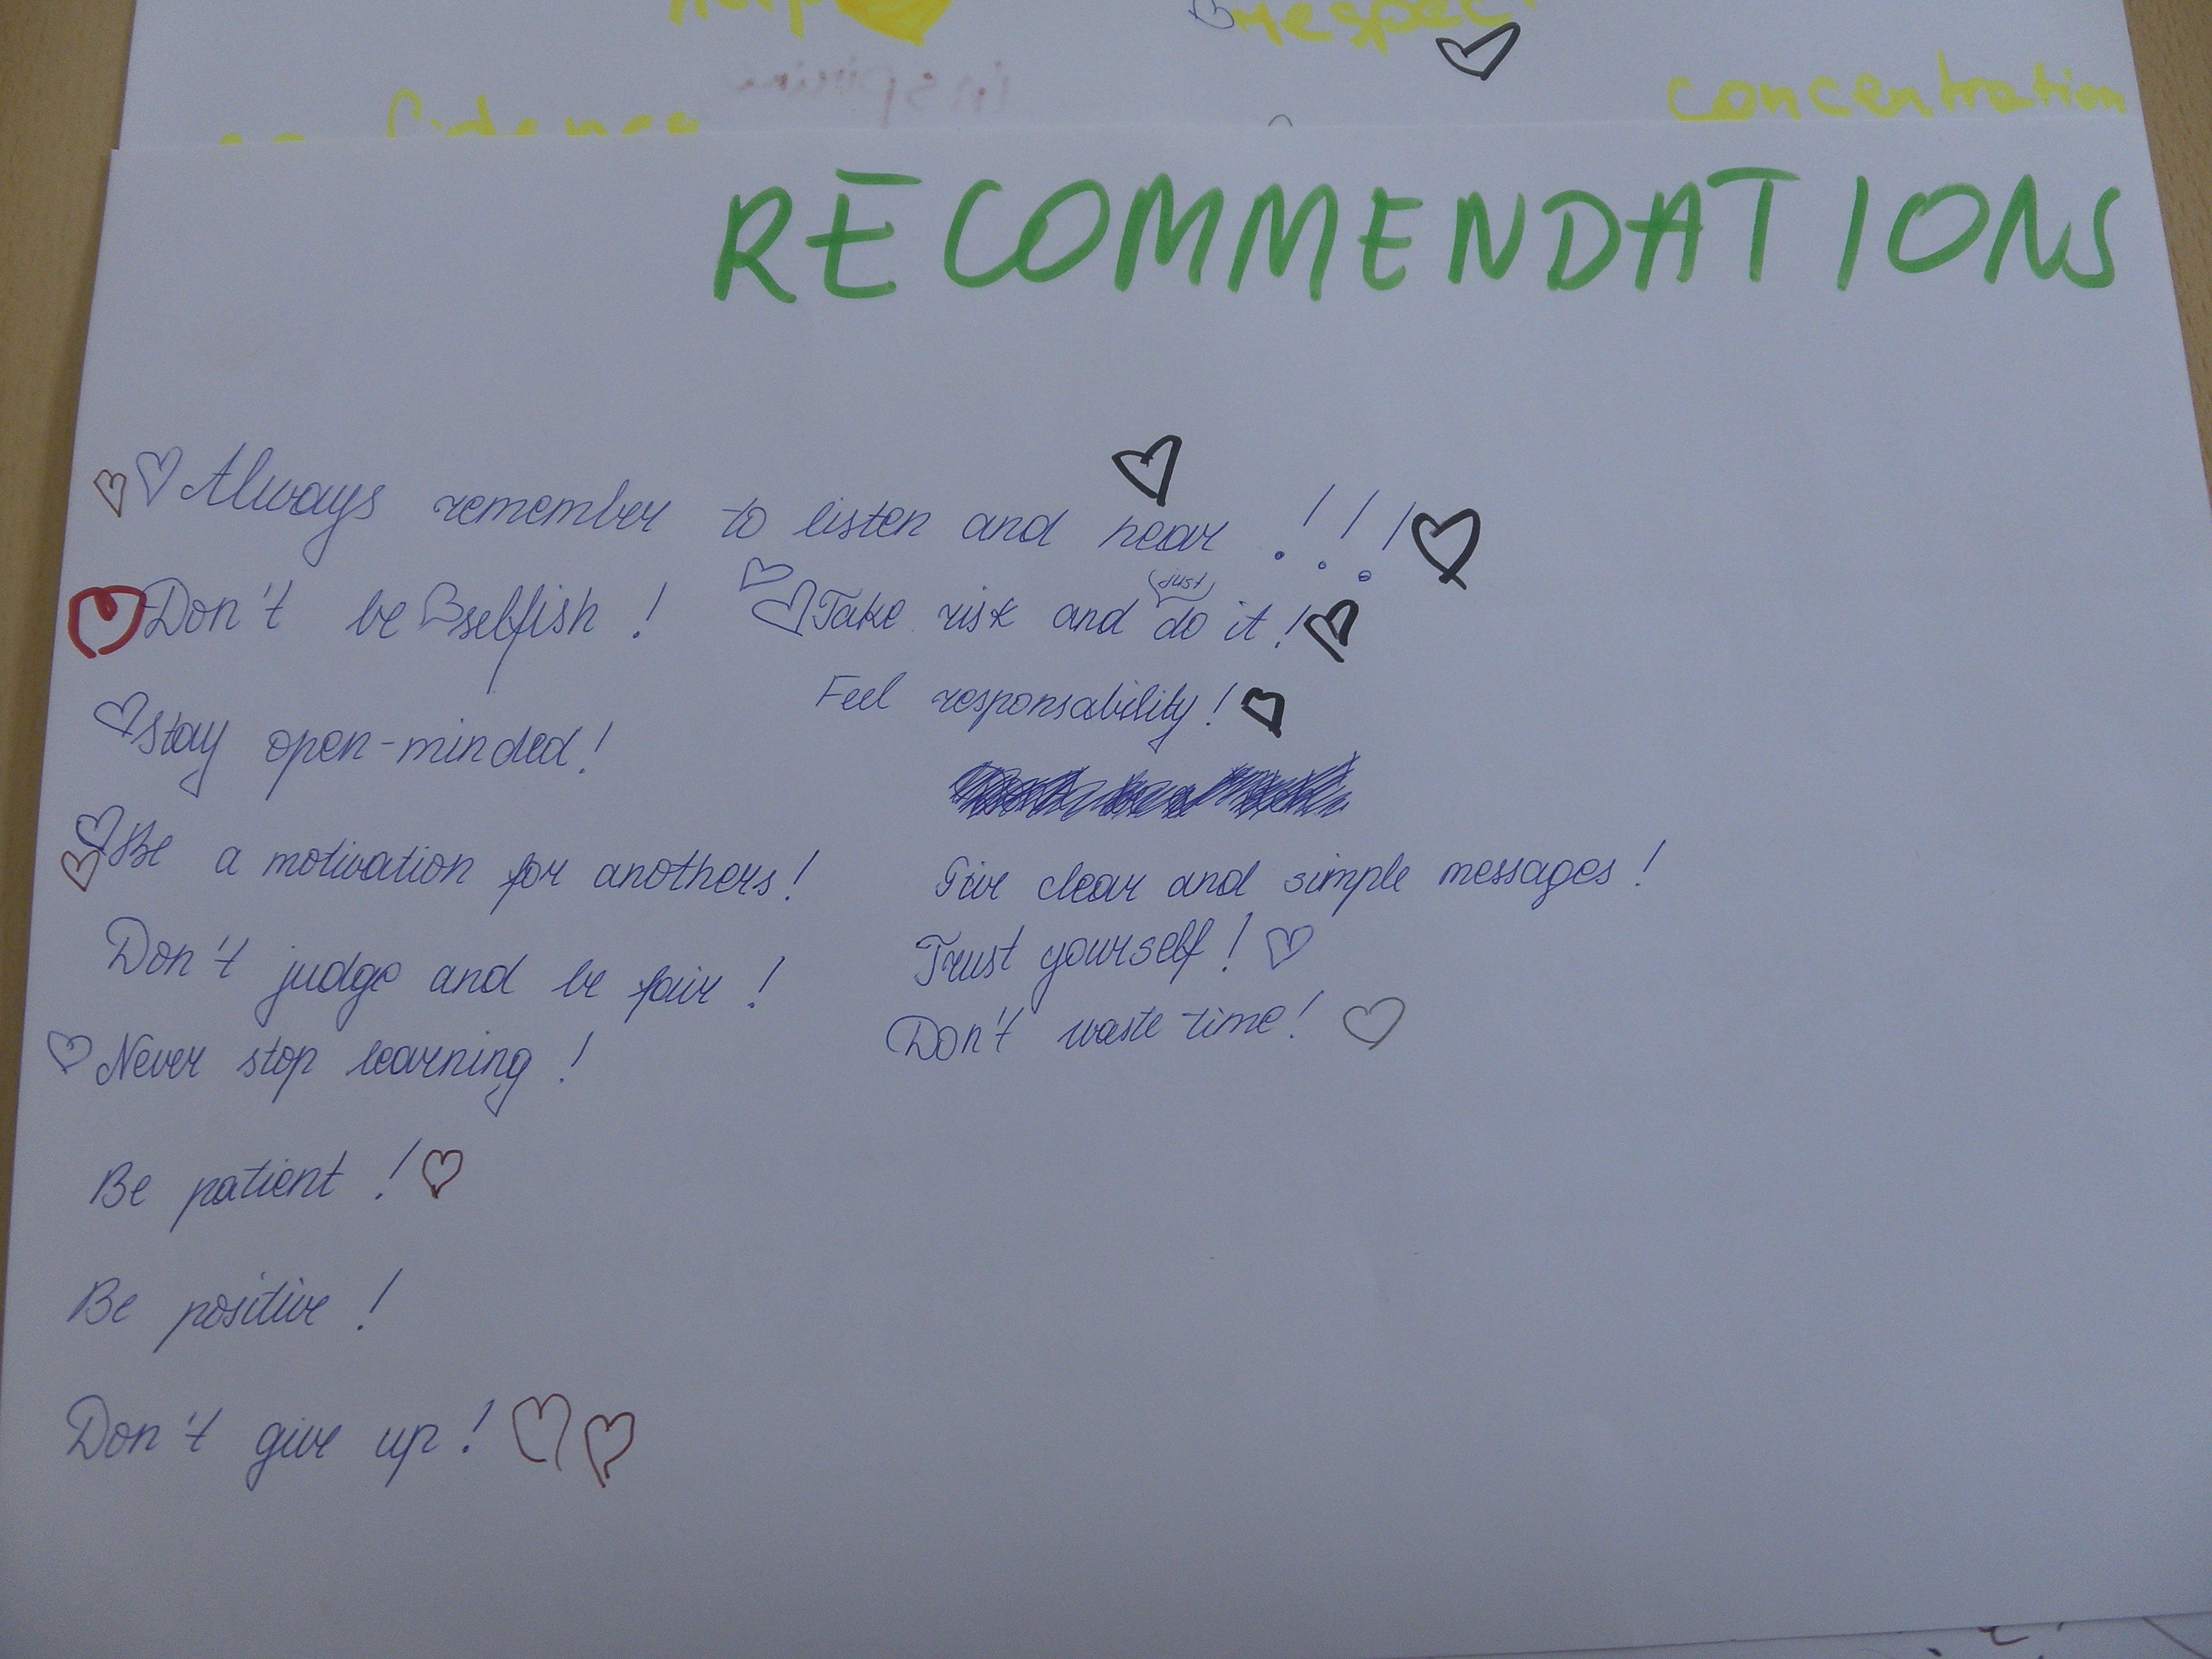 help respect
inspiring
concentration
confidence
RECOMMENDATIONS
Always remember to listen and hear !!!
Don't be selfish!
Stay open-minded!
Be a motivation for anothers!
Don't judge and be fair!
Never stop learning!
Be patient!
Be positive!
Don't give up!
Take risk and (just) do it!
Feel responsability!
Give clear and simple messages!
Trust yourself!
Don't waste time!